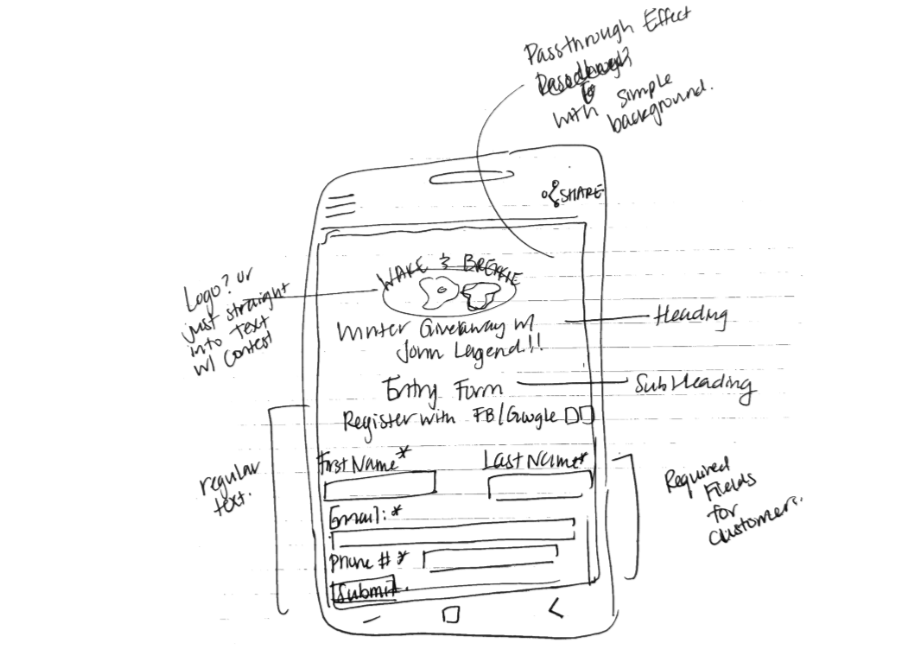 Passthrough Effect
with simple
background.
SHARE
WAKE & BREKKIE
Logo? or
just straight
into text
w/ contest
Winter Giveaway w/
John Legend!!
Heading
Entry Form
SubHeading
Register with FB/Google
regular
text.
First Name*
Last Name*
Required
Fields
for
customers.
Email: *
Phone # *
Submit.